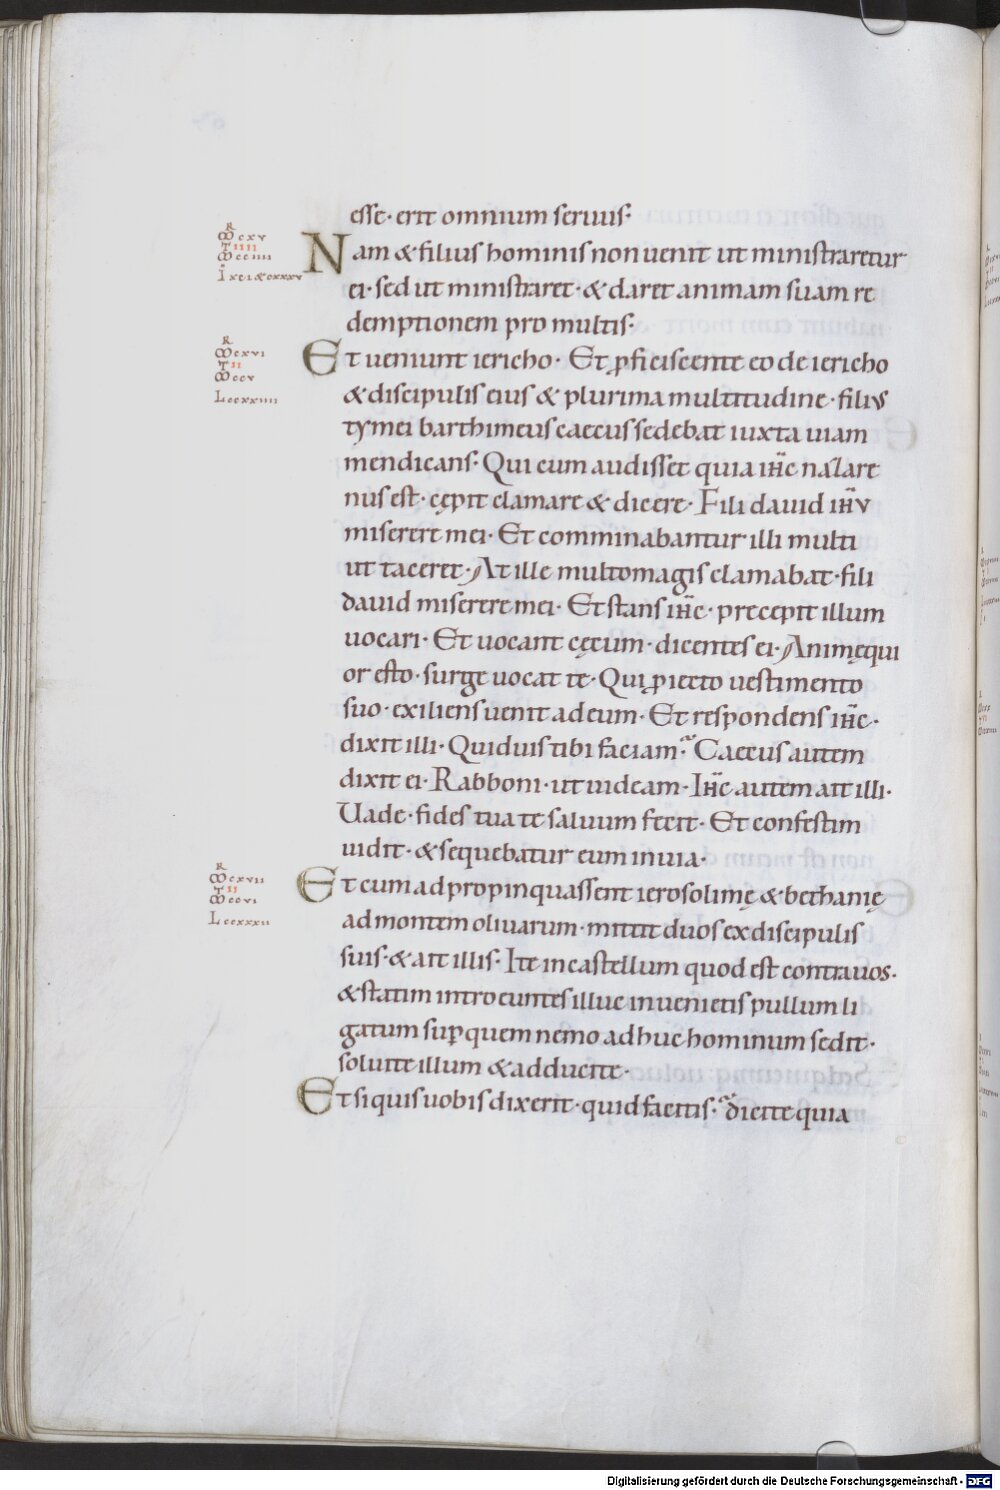 esse· erit omnium seruus·
R
ꝏ cxv
T IIII
ꝏ cciiii
Nam & filius hominis non uenit ut ministraretur
ei· sed ut ministraret· & daret animam suam re
demptionem pro multis·
R
ꝏ cxvi
T II
ꝏ ccv
L ccxxiiii
Et ueniunt iericho· Et ꝓficiscente eo de iericho
& discipulis eius & plurima multitudine· filius
tymei barthimeus caecus sedebat iuxta uiam
mendicans· Qui cum audisset quia ih̅c nazare
nus est· cępit clamare & dicere· Fili dauid ih̅v
miserere mei· Et comminabantur illi multi
ut taceret· At ille multo magis clamabat· fili
dauid miserere mei· Et stans ih̅c· precepit illum
uocari· Et uocant cęcum· dicentes ei· Animęqui
or esto· surge uocat te· Qui ꝓiecto uestimento
suo· exiliens uenit ad eum· Et respondens ih̅c·
dixit illi· Quid uis tibi faciam? Caecus autem
dixit ei· Rabboni· ut uideam· Ih̅c autem ait illi·
Uade· fides tua te saluum fecit· Et confestim
uidit· & sequebatur eum in uia·
R
ꝏ cxvii
T II
ꝏ ccvi
L ccxxxii
Et cum adpropinquassent ierosolimę & bethanię
ad montem oliuarum· mittit duos ex discipulis
suis· & ait illis· Ite in castellum quod est contra uos·
& statim introeuntes illuc inuenietis pullum li
gatum sup̱ quem nemo adhuc hominum sedit·
soluite illum & adducite·
Et si quis uobis dixerit· quid facitis? dicite quia
Digitalisierung gefördert durch die Deutsche Forschungsgemeinschaft - DFG